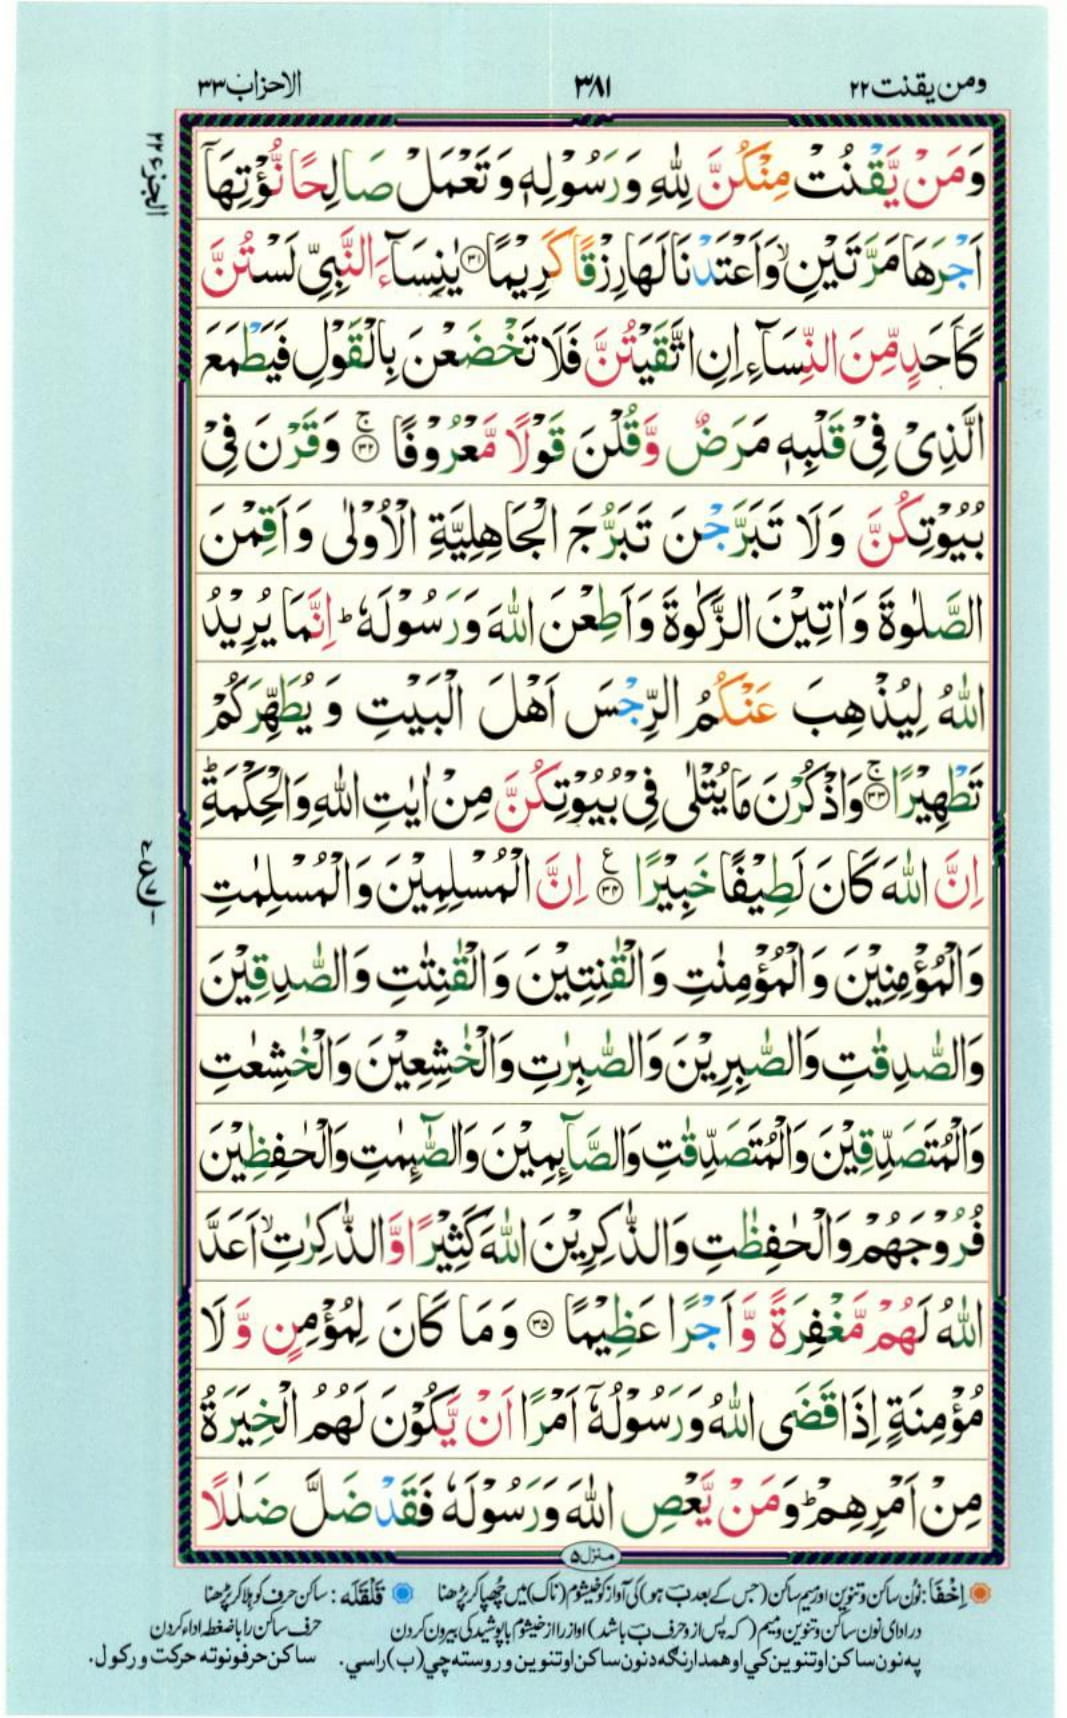 ومن یقنت ۲۲
۳۸۱
الاحزاب ۳۳
الجزء ۲۲
وَمَنْ يَّقْنُتْ مِنْكُنَّ لِلّٰهِ وَرَسُوْلِهٖ وَتَعْمَلْ صَالِحًا نُّؤْتِهَاۤ
اَجْرَهَا مَرَّتَيْنِ ۙ وَاَعْتَدْنَا لَهَا رِزْقًا كَرِيْمًا ﴿۳۱﴾ يٰنِسَآءَ النَّبِىِّ لَسْتُنَّ
كَاَحَدٍ مِّنَ النِّسَآءِ اِنِ اتَّقَيْتُنَّ فَلَا تَخْضَعْنَ بِالْقَوْلِ فَيَطْمَعَ
الَّذِىْ فِىْ قَلْبِهٖ مَرَضٌ وَّقُلْنَ قَوْلًا مَّعْرُوْفًا ﴿۳۲﴾ ۚ وَقَرْنَ فِىْ
بُيُوْتِكُنَّ وَلَا تَبَرَّجْنَ تَبَرُّجَ الْجَاهِلِيَّةِ الْاُوْلٰى وَاَقِمْنَ
الصَّلٰوةَ وَاٰتِيْنَ الزَّكٰوةَ وَاَطِعْنَ اللّٰهَ وَرَسُوْلَهٗ ؕ اِنَّمَا يُرِيْدُ
اللّٰهُ لِيُذْهِبَ عَنْكُمُ الرِّجْسَ اَهْلَ الْبَيْتِ وَ يُطَهِّرَكُمْ
تَطْهِيْرًا ﴿۳۳﴾ ۚ وَاذْكُرْنَ مَا يُتْلٰى فِىْ بُيُوْتِكُنَّ مِنْ اٰيٰتِ اللّٰهِ وَالْحِكْمَةِ ؕ
اِنَّ اللّٰهَ كَانَ لَطِيْفًا خَبِيْرًا ﴿۳۴﴾ ع اِنَّ الْمُسْلِمِيْنَ وَالْمُسْلِمٰتِ
وَالْمُؤْمِنِيْنَ وَالْمُؤْمِنٰتِ وَالْقٰنِتِيْنَ وَالْقٰنِتٰتِ وَالصّٰدِقِيْنَ
وَالصّٰدِقٰتِ وَالصّٰبِرِيْنَ وَالصّٰبِرٰتِ وَالْخٰشِعِيْنَ وَالْخٰشِعٰتِ
وَالْمُتَصَدِّقِيْنَ وَالْمُتَصَدِّقٰتِ وَالصَّآئِمِيْنَ وَالصّٰٓئِمٰتِ وَالْحٰفِظِيْنَ
فُرُوْجَهُمْ وَالْحٰفِظٰتِ وَالذّٰكِرِيْنَ اللّٰهَ كَثِيْرًا وَّالذّٰكِرٰتِ ۙ اَعَدَّ
اللّٰهُ لَهُمْ مَّغْفِرَةً وَّاَجْرًا عَظِيْمًا ﴿۳۵﴾ وَمَا كَانَ لِمُؤْمِنٍ وَّلَا
مُؤْمِنَةٍ اِذَا قَضَى اللّٰهُ وَرَسُوْلُهٗۤ اَمْرًا اَنْ يَّكُوْنَ لَهُمُ الْخِيَرَةُ
مِنْ اَمْرِهِمْ ؕ وَمَنْ يَّعْصِ اللّٰهَ وَرَسُوْلَهٗ فَقَدْ ضَلَّ ضَلٰلًا
منزل ۵
اِخْفَا: نُون ساکن و تنوین اور میم ساکن (جس کے بعد ب ہو) کی آواز کو خیشوم (ناک) میں چُھپا کر پڑھنا قَلْقَلَه: ساکن حرف کو ہلا کر پڑھنا
در ادای نون ساکن و تنوین و میم (که پس از و حرف ب باشد) آواز را از خیشوم با پوشیدگی بیرون کردن حرف ساکن را با ضغطه اداء کردن
په نون ساکن او تنوین کي او همدارنګه د نون ساکن او تنوین وروسته چي (ب) راسي. ساکن حرفونو ته حرکت ورکول.